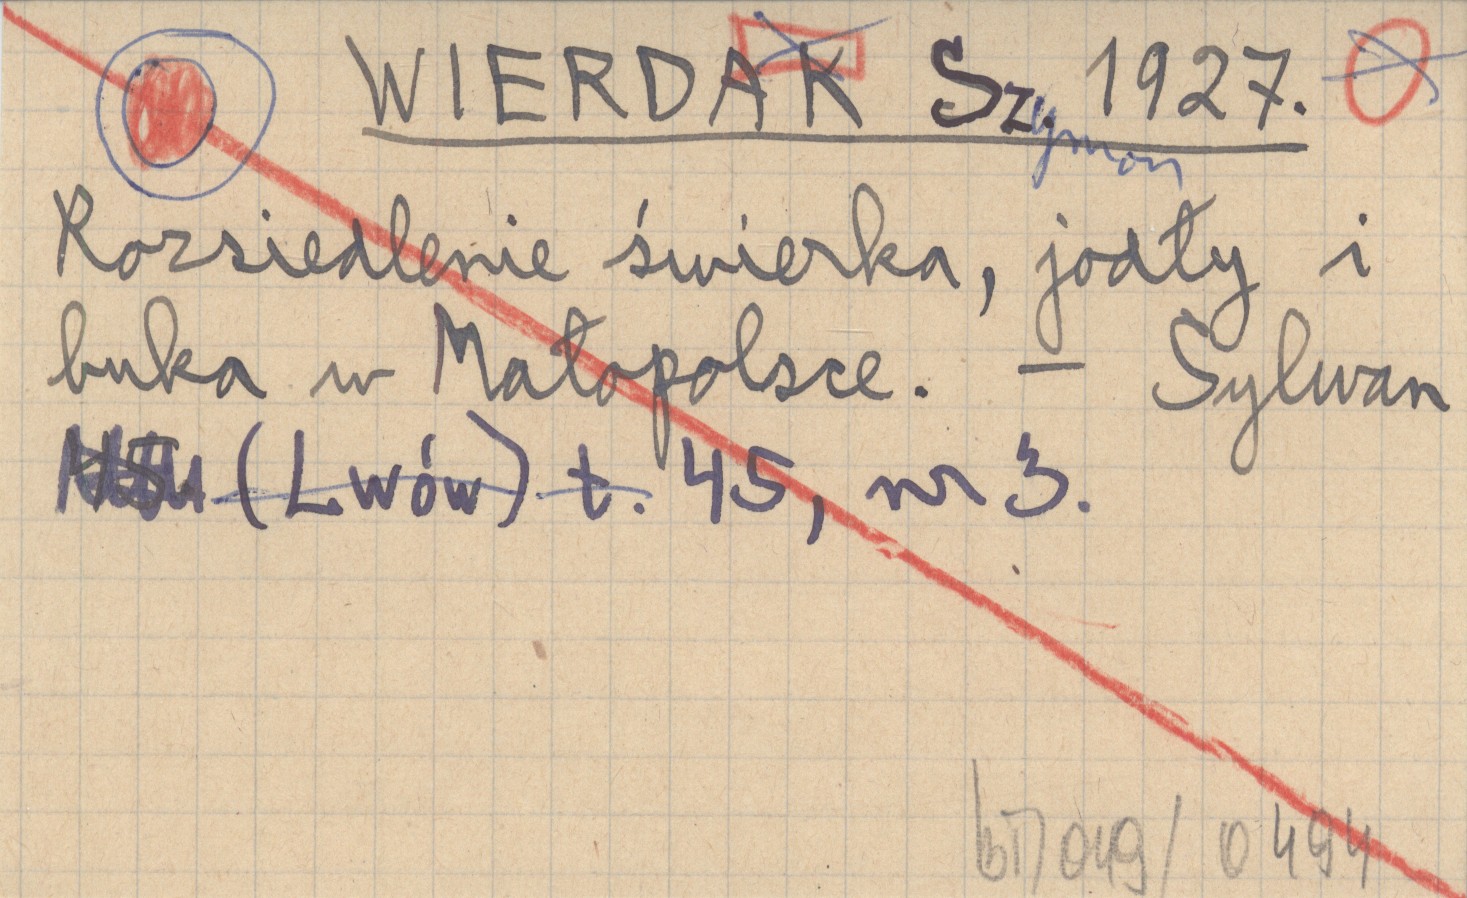 WIERDAK Sz. 1927.
ymon
Rozsiedlenie świerka, jodły i
buka w Małopolsce. — Sylwan
(Lwów) t. 45, nr 3.
0494